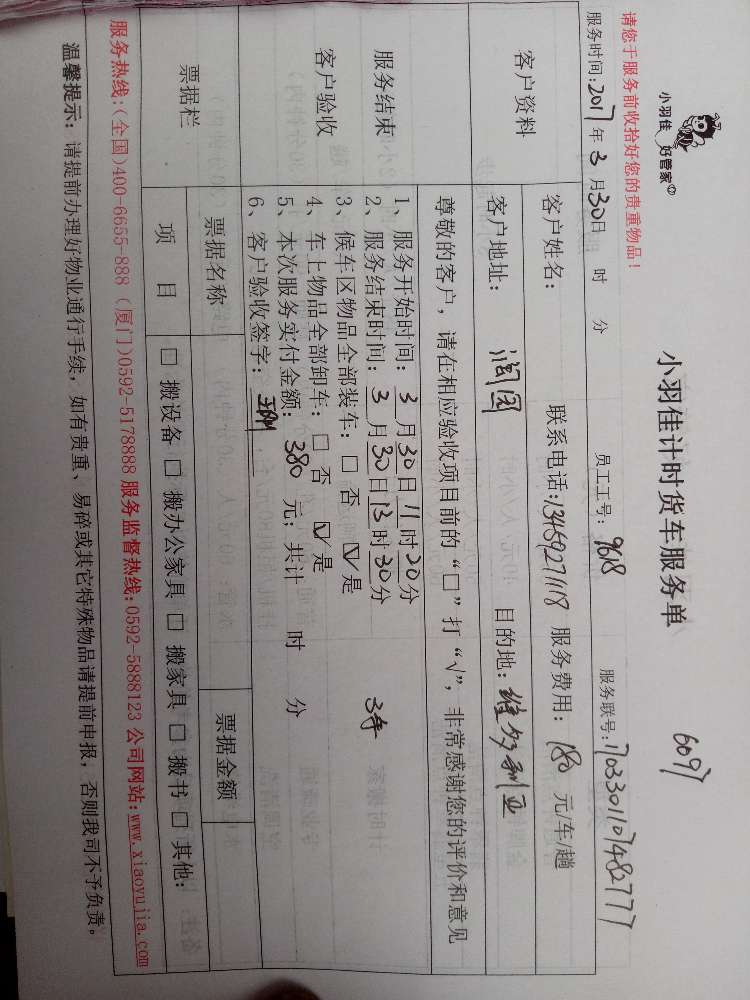 小羽佳 好管家
请您于服务前收拾好您的贵重物品！
小羽佳计时货车服务单
6097
服务时间：2017年3月30日 时 分 员工工号：9618 服务联号：170330110748277
客户资料
客户姓名： 联系电话：13459271118 服务费用：180 元/车/趟
客户地址： 阅园 目的地：维多利亚
服务结束
客户验收
尊敬的客户，请在相应验收项目前的“□”打“√”，非常感谢您的评价和意见
1、服务开始时间：3月30日11时20分
2、服务结束时间：3月30日13时30分
3、候车区物品全部装车：□ 否 ☑ 是
4、车上物品全部卸车：□ 否 ☑ 是
5、本次服务实付金额：380 元；共计 时 分
6、客户验收签字：
票据栏
票据名称
票据金额
项 目
□ 搬设备 □ 搬办公家具 □ 搬家具 □ 搬书 □ 其他：
服务热线：(全国)400-6655-888 (厦门)0592-5178888 服务监督热线：0592-5888123 公司网站：www.xiaoyujia.com
温馨提示：请提前办理好物业通行手续，如有贵重、易碎或其它特殊物品请提前申报，否则我司不予负责。